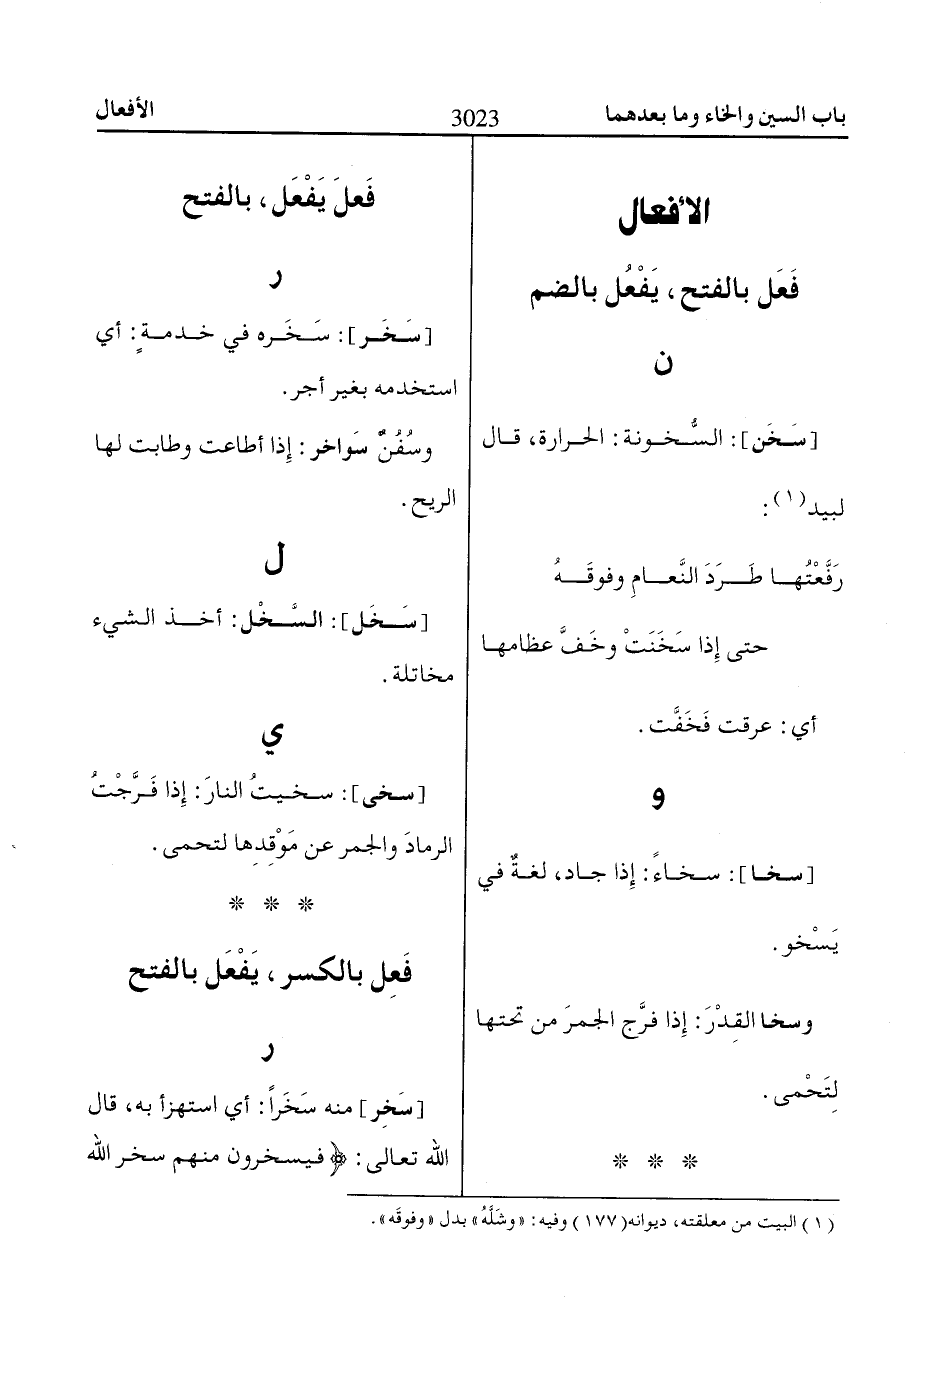 باب السين والخاء وما بعدهما
3023
الأفعال
الأفعال
فَعَل بالفتح، يَفْعُل بالضم
ن
[سَخَن]: السُّخونة: الحرارة، قال
لبيد(١):
رَفَّعْتُها طَرَدَ النَّعامِ وفوقَهُ
حتى إِذا سَخَنَتْ وخَفَّ عظامها
أي: عرقت فَخَفَّت.
و
[سخا]: سخاءً: إِذا جاد، لغةٌ في
يَسْخو.
وسخا القِدْرَ: إِذا فرَّج الجمرَ من تحتها
لِتَحْمى.
* * *
فَعلَ يَفْعَل، بالفتح
ر
[سَخَر]: سَخَره في خدمةٍ: أي
استخدمه بغير أجر.
وسُفُنٌ سَواخر: إِذا أطاعت وطابت لها
الريح.
ل
[سَخَل]: السَّخْل: أخذ الشيء
مخاتلة.
ي
[سخى]: سخيتُ النارَ: إِذا فَرَّجْتُ
الرمادَ والجمر عن مَوْقِدِها لتحمى.
* * *
فَعِل بالكسر، يَفْعَل بالفتح
ر
[سَخِر] منه سَخَراً: أي استهزأ به، قال
الله تعالى: ﴿فيسخرون منهم سخر الله
(١) البيت من معلقته، ديوانه (١٧٧) وفيه: «وشَلَّهُ» بدل «وفوقَه».